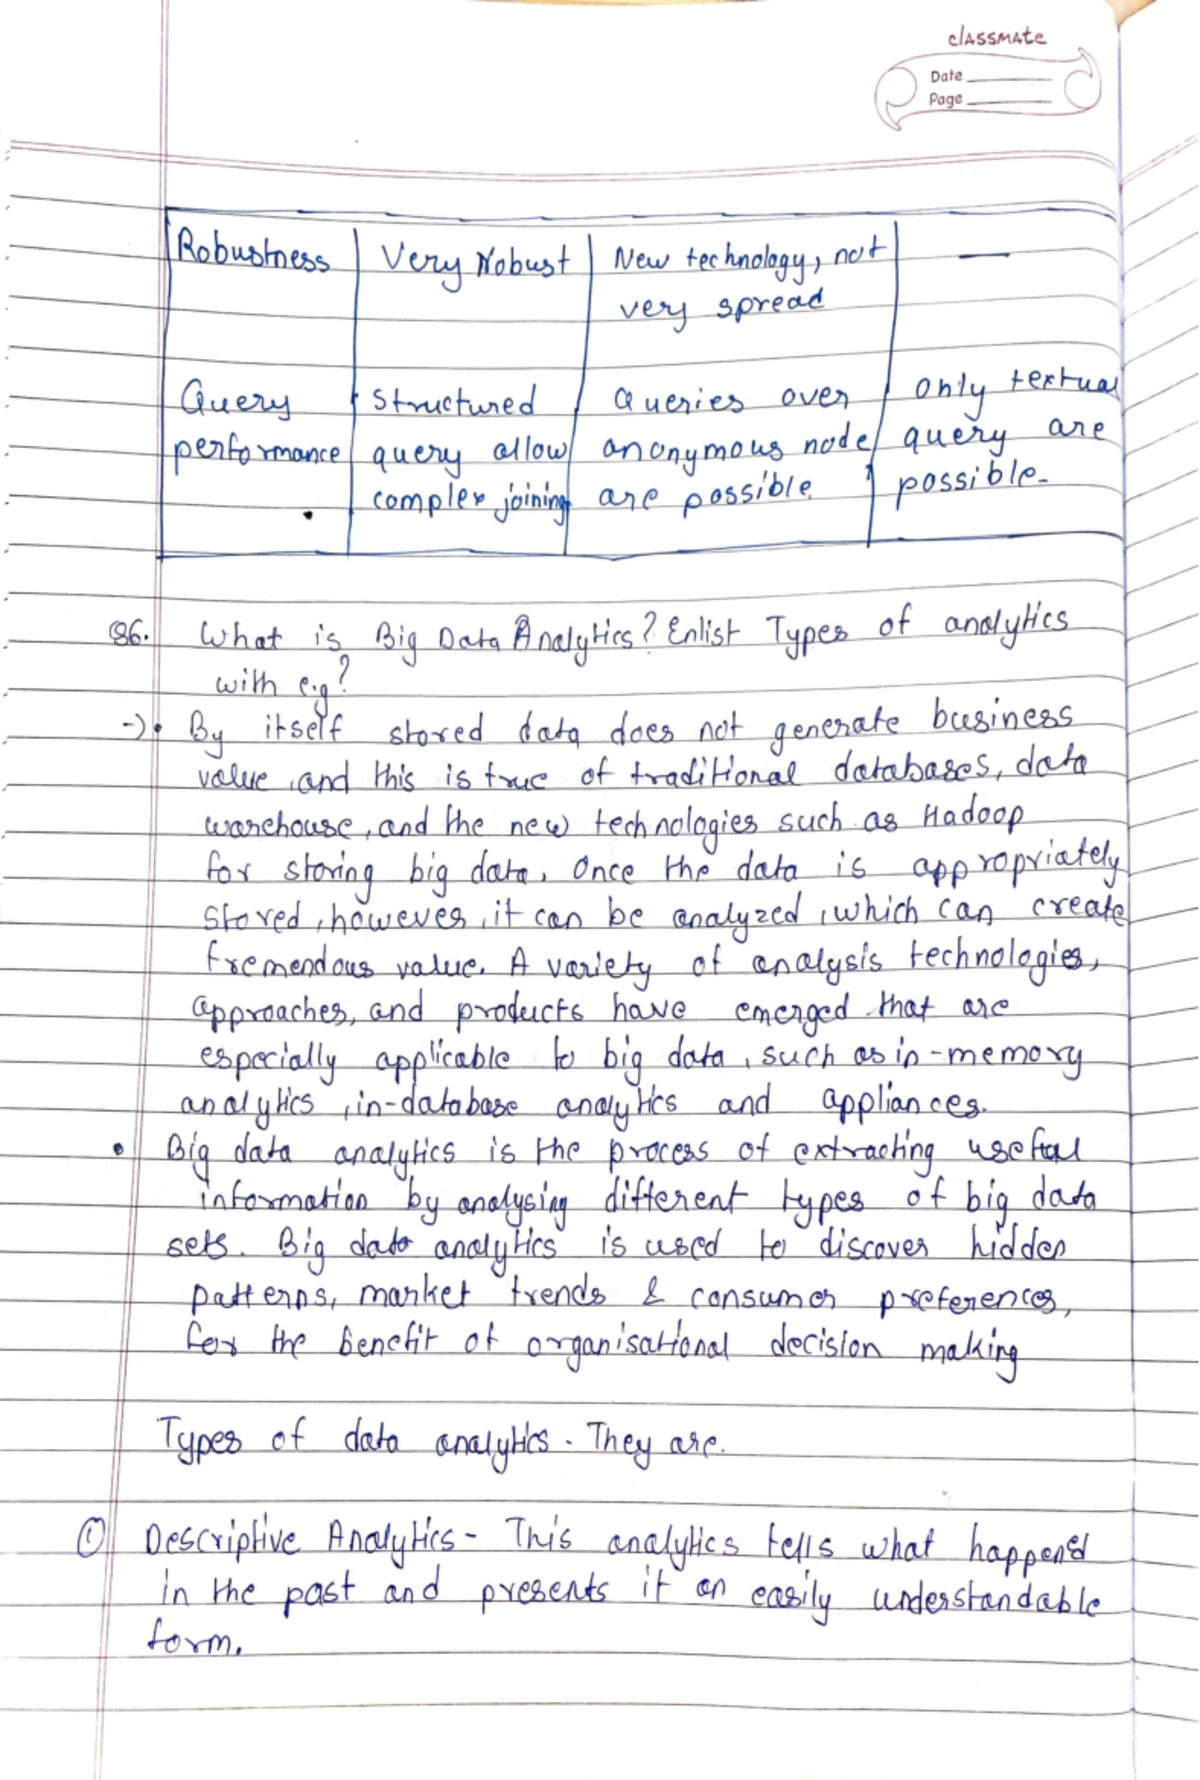 classmate
Date
Page
Robustness | Very Robust | New technology, not | —
very spread
Query | Structured | Queries over | only textual
performance | query allow | anonymous node | query are
complex joining | are possible. | possible.
Q6. What is Big Data Analytics? Enlist Types of analytics
with e.g?
→ • By itself stored data does not generate business
value, and this is true of traditional databases, data
warehouse, and the new technologies such as Hadoop
for storing big data. Once the data is appropriately
stored, however, it can be analyzed, which can create
tremendous value. A variety of analysis technologies,
approaches, and products have emerged that are
especially applicable to big data, such as in-memory
analytics, in-database analytics and appliances.
• Big data analytics is the process of extracting useful
information by analysing different types of big data
sets. Big data analytics is used to discover hidden
patterns, market trends & consumer preferences,
for the benefit of organisational decision making
Types of data analytics - They are.
① Descriptive Analytics - This analytics tells what happened
in the past and presents it an easily understandable
form.